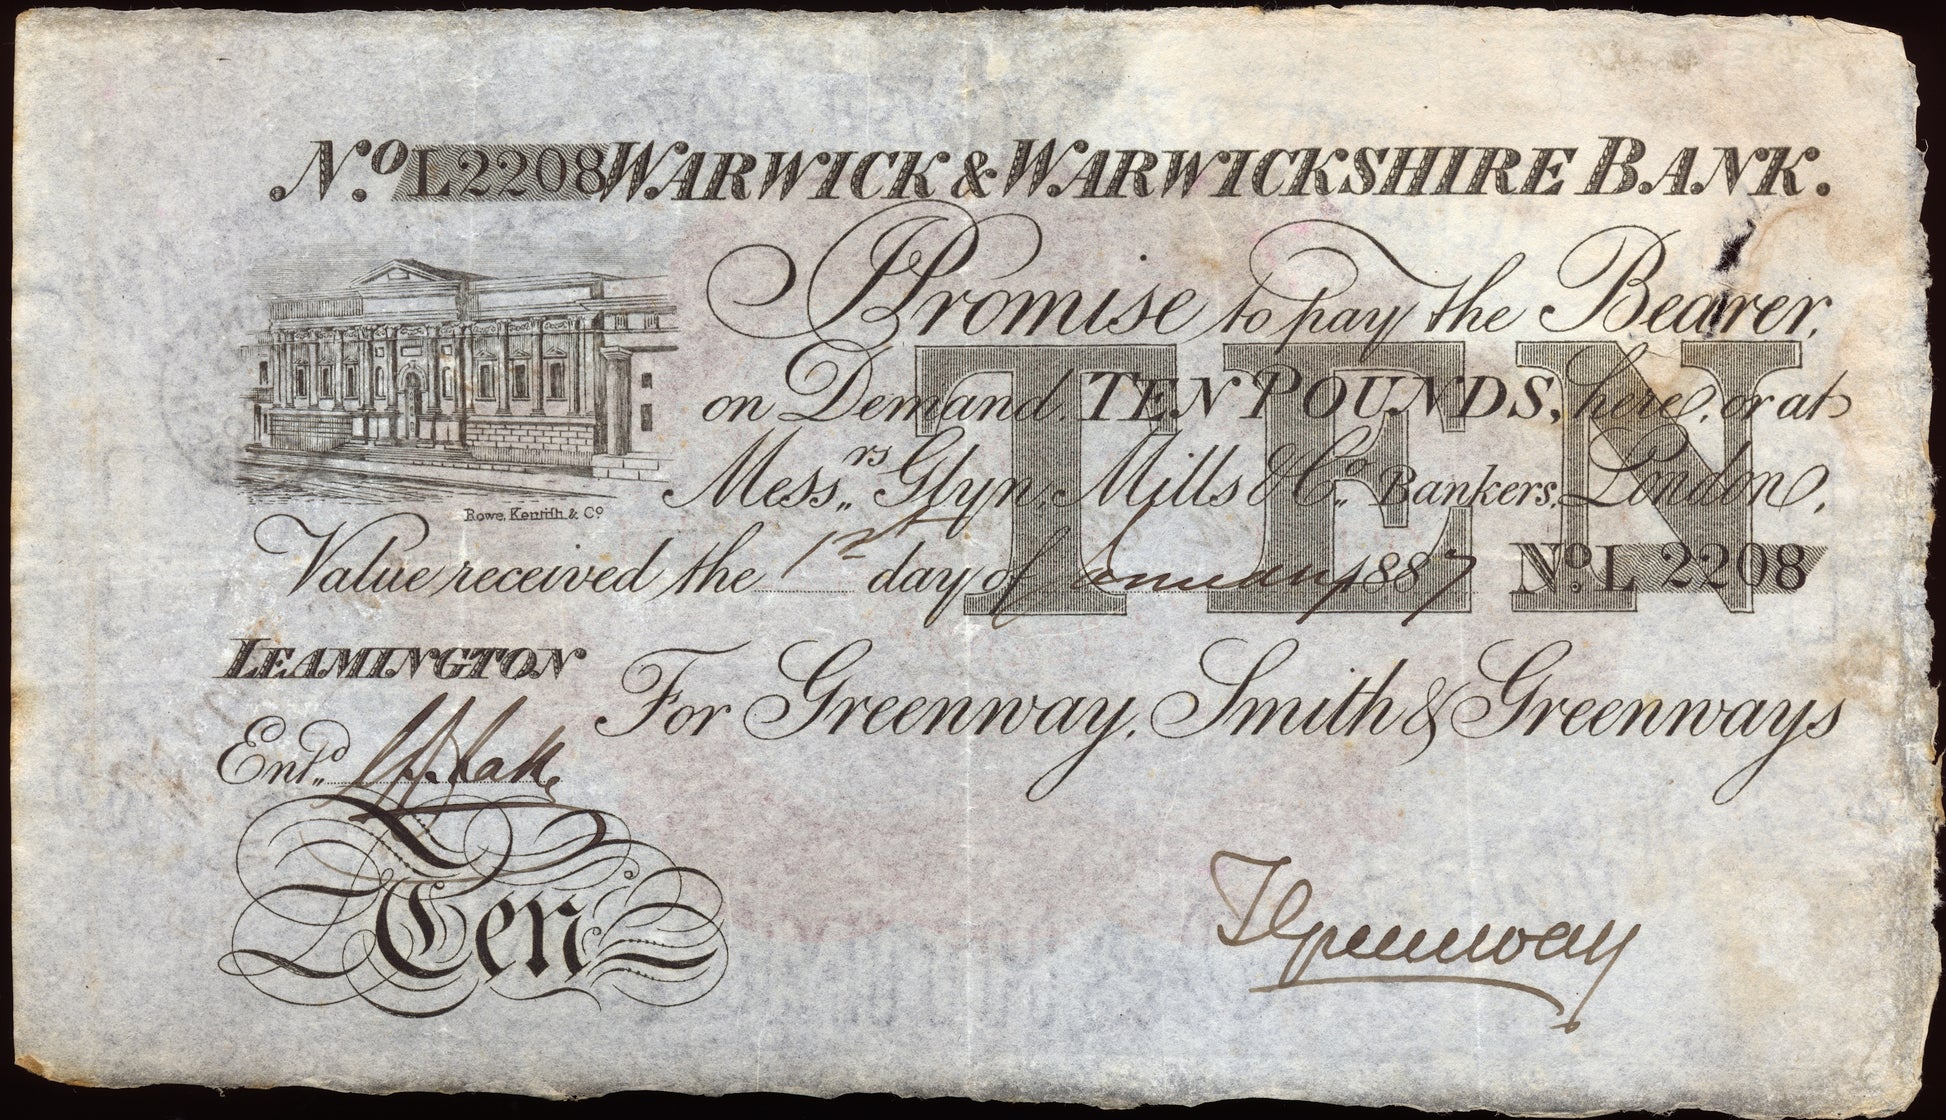 No. L2208 WARWICK & WARWICKSHIRE BANK.
I Promise to pay the Bearer,
on Demand, TEN POUNDS, here, or at
Messrs. Glyn, Mills & Co. Bankers, London,
Rowe, Kentish & Co
Value received the 1st day of January 1887 No. L 2208
TEN
LEAMINGTON
For Greenway, Smith & Greenways
Entd.
Ten
Greenway